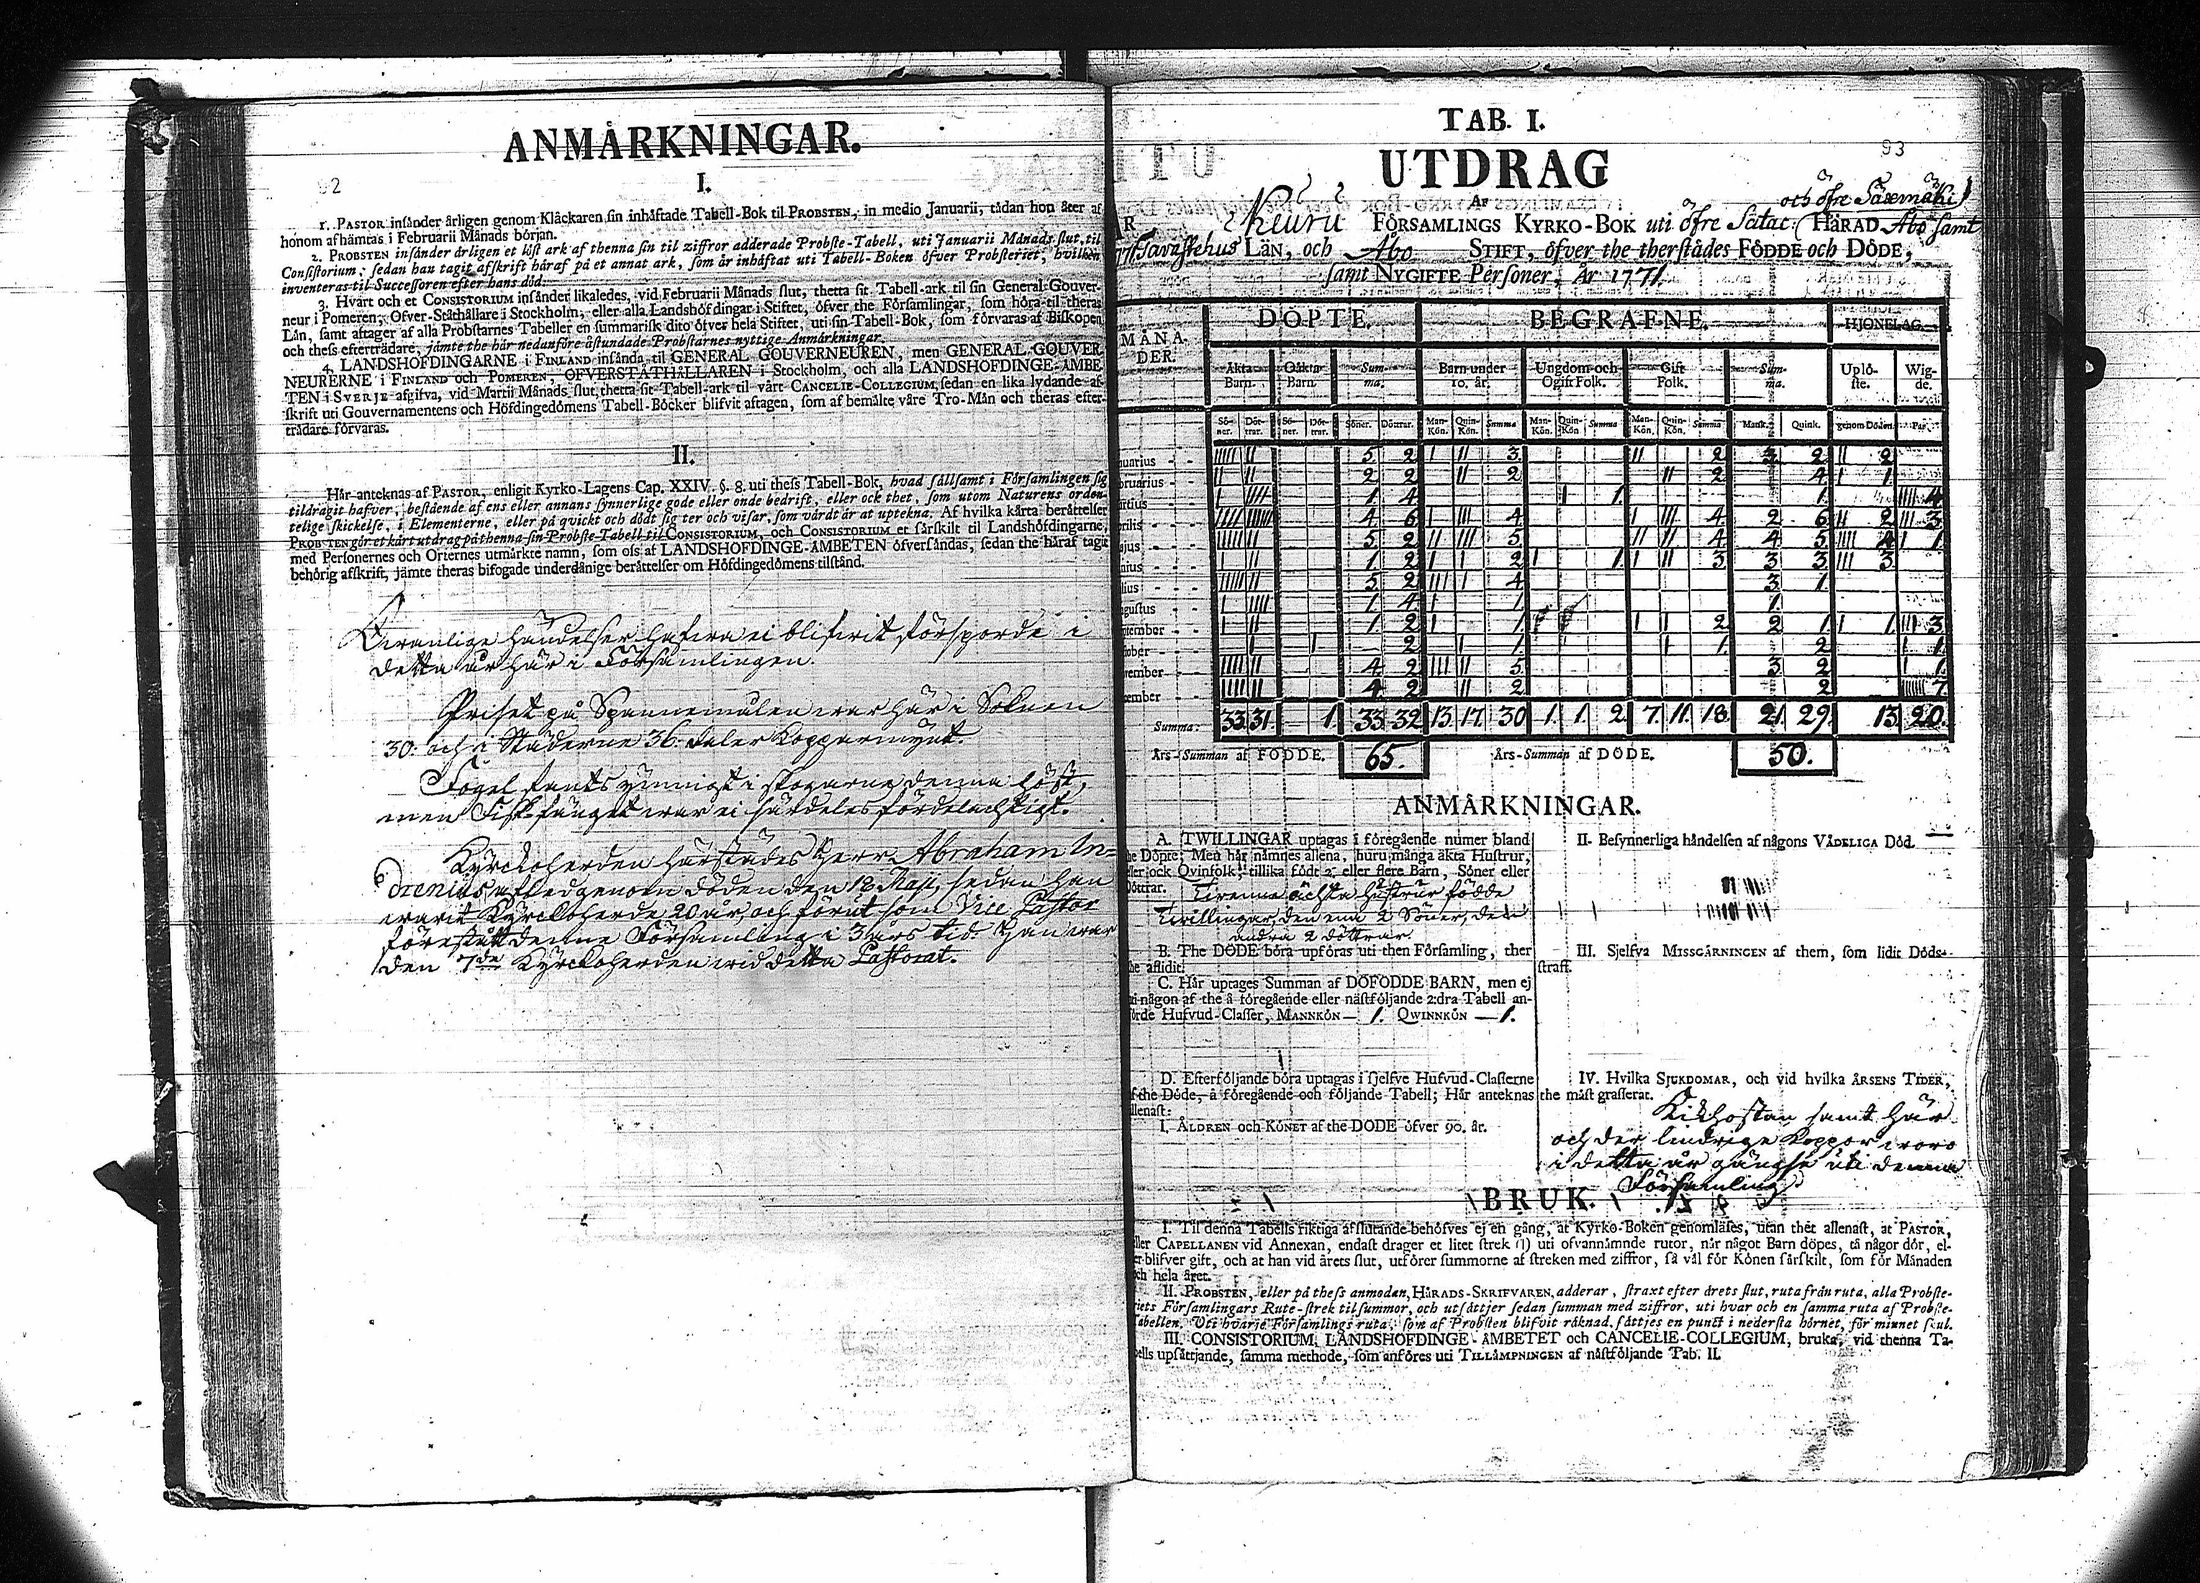 92
ANMÅRKNINGAR.
I.
1. PASTOR insånder årligen genom Klåckaren sin inhåftade Tabell-Bok til PROBSTEN, in medio Januarii, tådan hon åter af
honom afhåmtas i Februarii Månads början.
2. PROBSTEN insånder årligen et löst ark af thenna sin til ziffror adderade Probste-Tabell, uti Januarii Månads slut, til
Consistorium; sedan han tagit afskrift håraf på et annat ark, som år inhåftat uti Tabell-Boken öfver Probsteriet, hvilken
inventeras til Successoren efter hans död.
3. Hvart och et CONSISTORIUM insånder likaledes, vid Februarii Månads slut, thetta sit Tabell-ark til sin General-Gouver-
neur i Pomeren, Ofver-Ståthållare i Stockholm, eller alla Landshöfdingar i Stiftet, öfver the Församlingar, som höra til theras
Lån, samt aftager af alla Probstarnes Tabeller en summarisk dito öfver hela Stiftet, uti sin Tabell-Bok, som förvaras af Biskopen
och thess eftertrådare, jåmte the hår nedanföre åstundade Probstarnes nyttige Anmårkningar.
4. LANDSHOFDINGARNE i FINLAND insånda til GENERAL GOUVERNEUREN, men GENERAL GOUVER
NEURERNE i FINLAND och POMEREN, OFVERSTÅTHÅLLAREN i Stockholm, och alla LANDSHOFDINGE-ÅMBE
TEN i SVERJE afgifva, vid Martii Månads slut, thetta sit Tabell-ark til vårt CANCELIE-COLLEGIUM, sedan en lika lydande af-
skrift uti Gouvernamentens och Höfdingedömens Tabell-Böcker blifvit aftagen, som af bemålte våre Tro-Mån och theras efter-
trådare förvaras.
II.
Hår anteknas af PASTOR, enligit Kyrko-Lagens Cap. XXIV. §. 8. uti thess Tabell-Bok, hvad sållsamt i Församlingen sig
tildragit hafver, bestående af ens eller annans synnerlige gode eller onde bedrift, eller ock thet, som utom Naturens orden-
telige skickelse, i Elementerne, eller på qvickt och dödt sig ter och visar, som vårdt år at uptekna. Af hvilka korta beråttelser
PROBSTEN gör et kårt utdrag på thenna sin Probste-Tabell til CONSISTORIUM, och CONSISTORIUM et sårskilt til Landshöfdingarne,
med Personernes och Orternes utmårkte namn, som oss af LANDSHOFDINGE-ÅMBETEN öfversåndas, sedan the håraf tagit
behörig afskrift, jåmte theras bifogade underdånige beråttelser om Höfdingedömens tilstånd.
händelser hafwa ei blifwit försporde i
detta år här i Församlingen.
Priset på Spannemålen war här i Soknen
30. och i Städerne 36. daler Kopparmynt.
Fogel fants ymnigt i skogarne denna höst,
men Fiskfänget war ei särdeles fördelachtigt.
Kyrckoherden härstädes Herr Abraham In-
drenius afled genom döden den 18 Maji, sedan han
warit Kyrckoherde 20 år, och förut som Vice Pastor
förestått denne Församling i 3 års tid. Han war
den 7de Kyrckoherden wid detta Pastorat.
93
TAB. I.
UTDRAG
AF
och öfre Säxmäki
Keuru FÖRSAMLINGS KYRKO-BOK uti öfre Satac. HÅRAD Åbo samt
Tavastehus LÅN, och Åbo STIFT, öfver the therstådes FÖDDE och DÖDE,
samt NYGIFTE Personer, År 1771.
MÅNA-
DER. DÖPTE. BEGRAFNE. HJONELAG.
Åkta Barn. Oåkta Barn. Summa. Barn under 10. år. Ungdom och Ogift Folk. Gift Folk. Summa. Uplö-ste. Wig-de.
Sö-ner. Döt-trar. Sö-ner. Döt-trar. Söner. Döttrar. Man-Kön. Quin-Kön. Summa Man-Kön. Quin-Kön Summa Man-Kön. Quin-Kön. Summa Mank. Quink. genom Döden. Par.
nuarius - - 5 2 3 2 3 2 2
bruarius - - 2 2 2 2 4 1
rtius - - 1 4 1 1 4
prilis - - 4 6 4 4 2 6 2 3
ajus - - 5 2 5 4 4 5 4 1
nius - - 1 2 2 1 3 3 3 3
lius - - 5 2 4 3 1
gustus - - 1 4 1 1
tember - - 1 2 1 2 2 1 1 3
tober - - 2 1 1 2 1
vember - - 4 2 5 3 2 1
cember - - 4 2 2 2 7
Summa: 33 31 — 1. 33 32 13. 17. 30 1. 1. 2. 7. 11. 18. 21. 29. 13. 20.
Års-Summan af FÖDDE. 65. Års-Summan af DÖDE. 50.
ANMÅRKNINGAR.
A. TWILLINGAR uptagas i föregående numer bland
he Döpte; Men hår nåmnes allena, huru många åkta Hustrur,
eller ock Qvinfolk, tillika födt 2. eller flere Barn, Söner eller
Döttrar.
Twenne ächta hustrur födde
Twillingar, den ena 2 Söner, den
andra 2 döttrar.
B. The DÖDE böra upföras uti then Församling, ther
he aflidit.
C. Hår uptages Summan af DÖDFÖDDE BARN, men ej
i någon af the å föregående eller nåstföljande 2:dra Tabell an-
förde Hufvud-Classer, MANNKÖN — 1. QWINNKÖN — 1.
D. Efterföljande böra uptagas i sjelfve Hufvud-Classerne
af the Döde, å föregående och följande Tabell; Hår anteknas
allenast:
I. ÅLDREN och KÖNET af the DÖDE öfver 90. år.
II. Besynnerliga håndelsen af någons VÅDELIGA Död.
III. Sjelfva MISSGÅRNINGEN af them, som lidit Döds-
straff.
IV. Hvilka SJUKDOMAR, och vid hvilka ÅRSENS TIDER,
the måst grasserat.
Kikhostan samt här
och der lindrige Koppor woro
i detta år gängse uti denna
Församling.
BRUK.
I. Til denna Tabells riktiga afslutande behöfves ej en gång, at Kyrko-Boken genomlåses, utan thet allenast, at PASTOR,
eller CAPELLANEN vid Annexan, endast drager et litet strek (|) uti ofvannåmnde rutor, når något Barn döpes, tå någor dör, el-
er blifver gift, och at han vid årets slut, utförer summorne af streken med ziffror, så vål för Könen sårskilt, som för Månaden
och hela året.
II. PROBSTEN, eller på thess anmodan, HÅRADS-SKRIFVAREN, adderar, straxt efter årets slut, ruta från ruta, alla Probste-
riets Församlingars Rute-strek til summor, och utsåttjer sedan summan med ziffror, uti hvar och en samma ruta af Probste-
tabellen. Uti hvarje Församlings ruta, som af Probsten blifvit råknad, såttjes en punct i nedersta hörnet, för minnet skul.
III. CONSISTORIUM, LANDSHOFDINGE-ÅMBETET och CANCELIE-COLLEGIUM, bruka, vid thenna Ta-
bells upsåttjande, samma methode, som anföres uti TILLÅMPNINGEN af nåstföljande Tab. II.